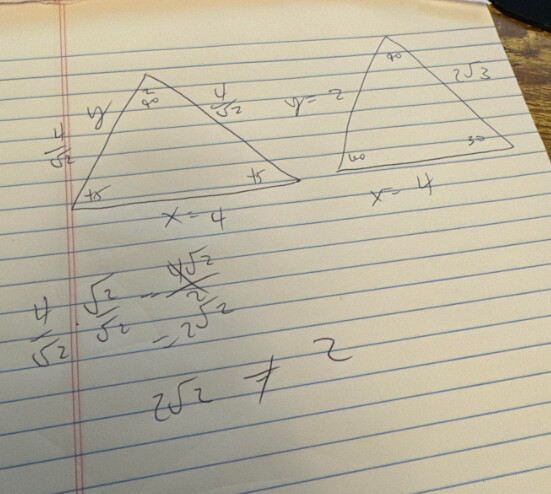 y
4/√2
2
90
4/√2
45
45
x = 4
y = 2
90
2√3
60
30
x = 4
4/√2 · √2/√2 = 4√2/2
= 2√2
2√2 ≠ 2